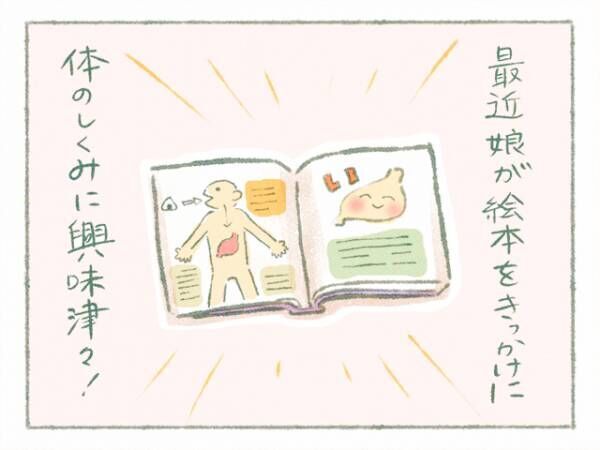 最近娘が絵本をきっかけに
体のしくみに興味津々！
い